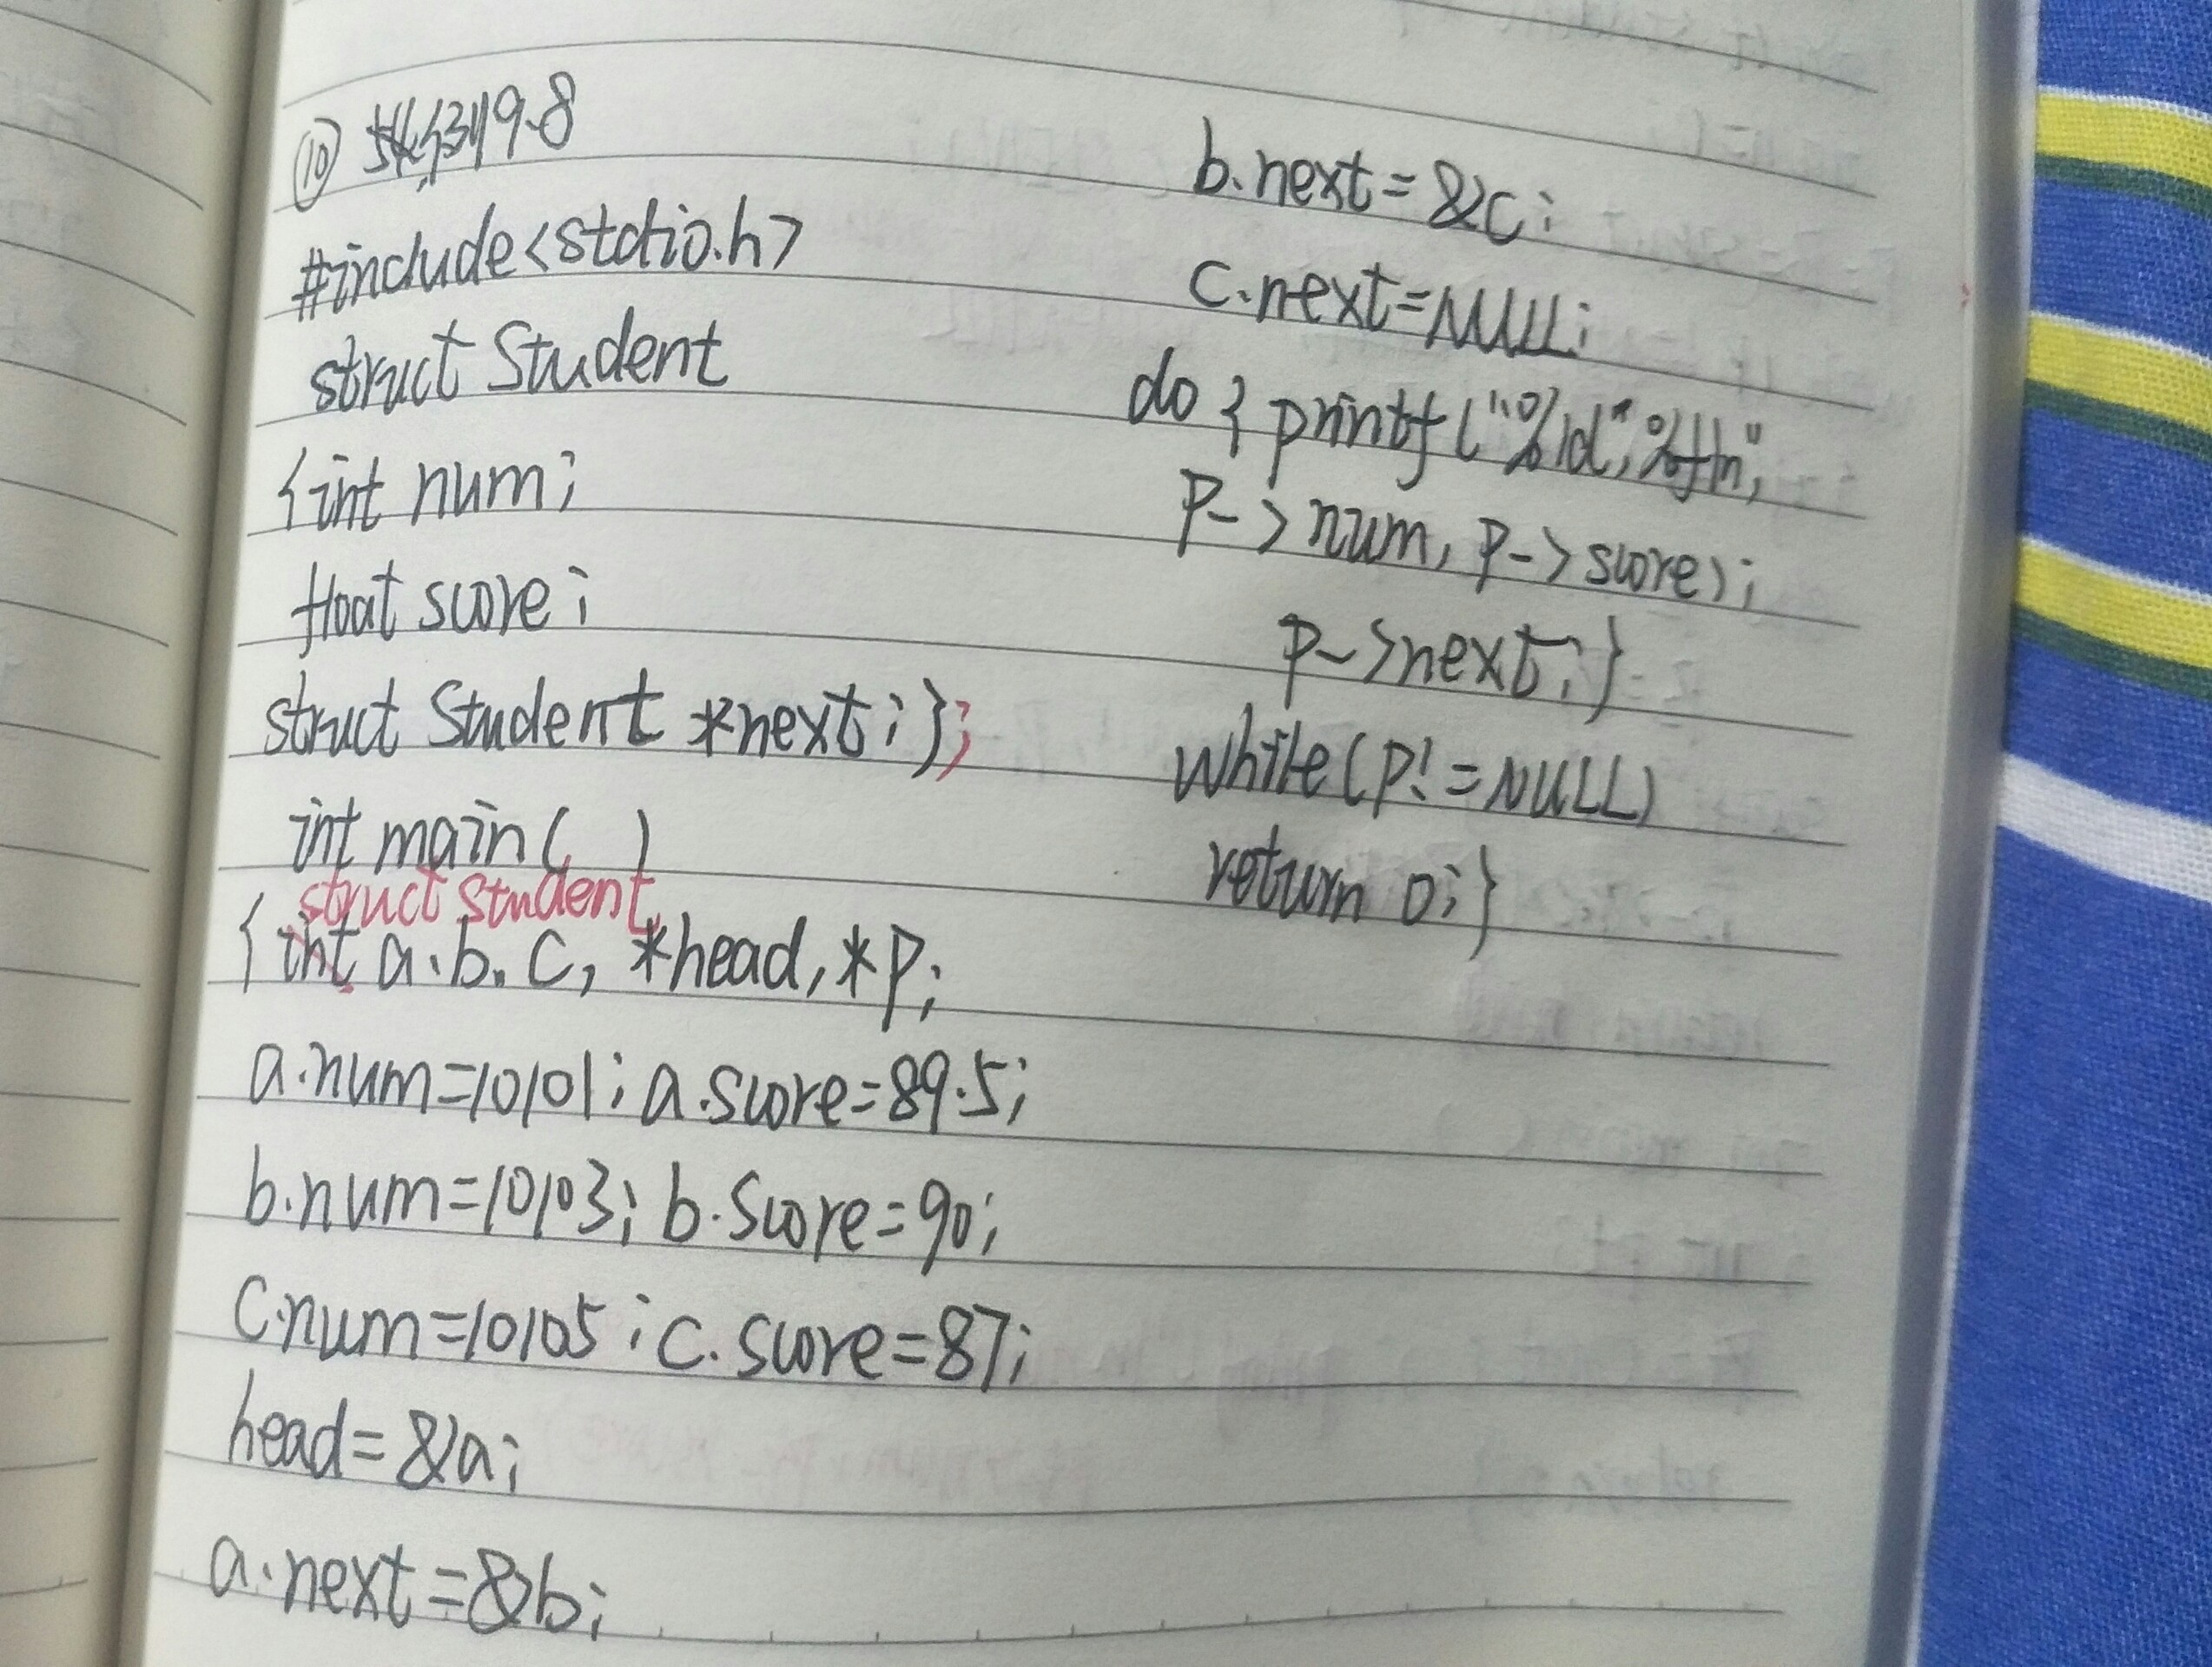 ⑩ 9.8
#include<stdio.h>
struct Student
{int num;
float score;
struct Student *next;};
int main( )
struct Student
{int a.b.c, *head,*p;
a.num=10101; a.score=89.5;
b.num=10103; b.score=90;
c.num=10105; c.score=87;
head=&a;
a.next=&b;
b.next=&c;
c.next=NULL;
do{printf("
p->num, p->score);
p->next;}
while(p!=NULL)
return 0;}